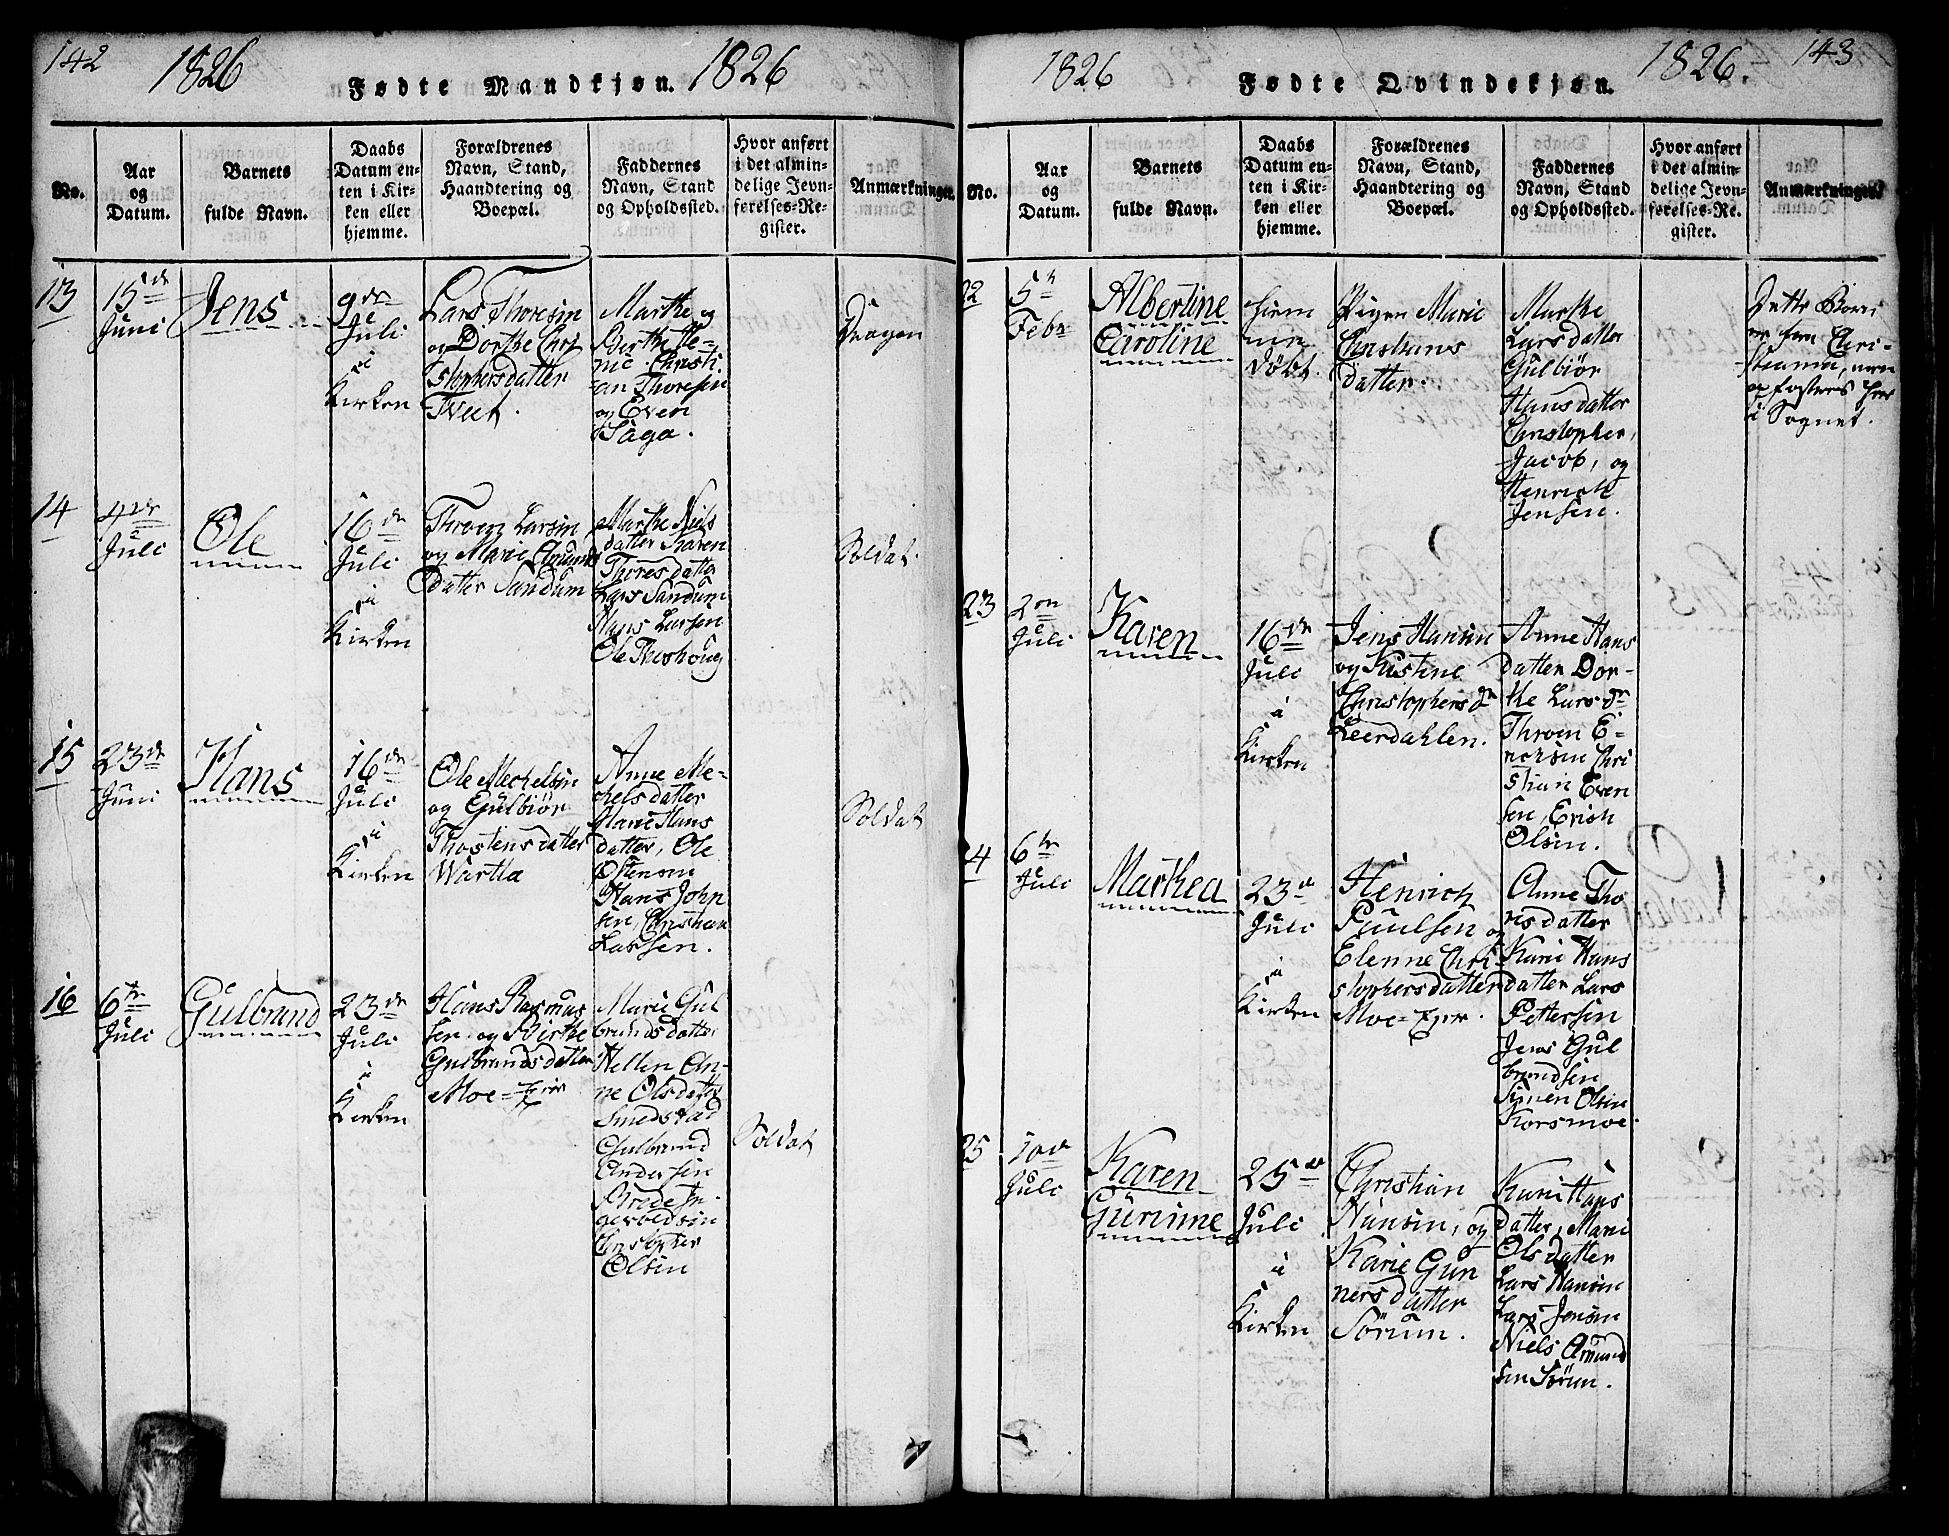 142
1826
Fødte Mandkjøn.
1826
No.
Aar
og
Datum.
Barnets
fulde Navn.
Daabs
Datum en-
ten i Kir-
ken eller
hjemme.
Forældrenes
Navn, Stand,
Haandtering og
Boepæl.
Faddernes
Navn, Stand
og Opholdssted.
Hvor anført
i det almin-
delige Jevn-
førelses-Re-
gister.
Anmærkninger.
13
15de
Juni
Jens
9de
Juli
i
Kirken
Lars Thoresen
og Dorthe Chri
stophersdatter
Tveet.
Marthe og
Berthe
Christi-
an Thoresen
og Even
Saga.
Dragon
14
4de
Juli
Ole
16de
Juli
i
Kirken
Throen Larsen
og Marie Amunds
datter Sandum
Marthe Niels
datter Karen
Thoresdatter
Lars Sandum
Hans Larsen
Ole
Soldat.
15
23de
Juni
Hans
16de
Juli
i
Kirken
Ole Mechelsen
og Gulbiør
Thostensdatter
Anne Me-
chelsdatter
Marie Hans
datter, Ole
Ostensen
Hans John
sen, Christian
Larsen.
Soldat
16
6te
Juli
Gulbrand
23de
Juli
i
Kirken
Hans Rasmus
sen og Birthe
Gulbrandsdatter
Moe-
Marie Gul
brandsdatter
Hellen An-
ne Olsdatter
Smedstad
Gulbrand
Andersen
Brede In-
gevoldsen
Christopher
Olsen
Soldat
143
1826
Fødte Qvindekjøn.
1826.
No.
Aar
og
Datum.
Barnets
fulde Navn.
Daabs
Datum en-
ten i Kir-
ken eller
hjemme.
Forældrenes
Navn, Stand,
Haandtering og
Boepæl.
Faddernes
Navn, Stand
og Opholdssted.
Hvor anført
i det almin-
delige Jevn-
førelses-Re-
gister.
Anmærkninger
22
5te
Febr
Albertine
Caroline
hjem
me
døbt.
Pigen Marie
Christians
datter.
Marthe
Larsdatter
Gulbiør
Hansdatter
Christopher,
Jacob, og
Henrich
Jensen.
Dette Barn
er fra Chri-
stiania, men
opfostres her
i Sognet.
23
2den
Juli
Karen
16de
Juli
i
Kirken
Jens Hansen
og Kistine
Christophersdr
Leerdahlen.
Anne Hans
datter Dor-
the Larsdr
Throen E-
versen Chri
stian Even
sen, Erich
Olsen.
24
6te
Juli
Marthea
23de
Juli
i
Kirken
Henrich
Paulsen og
Elenne Chri
stophersdatter
Moe-
Anne Tho
resdatter
Karie Hans
datter Lars
Pettersen
Jens Gul
brandsen
Simen Olsen
Korsmoe.
25
10de
Juli
Karen
Gurinne
25de
Juli
i
Kirken
Christian
Hansen, og
Karie Gun
nersdatter
Sørum.
Karie Hans
datter, Marie
Olsdatter
Lars Hansen
Lars Jensen
Niels Amund
sen Sørum.